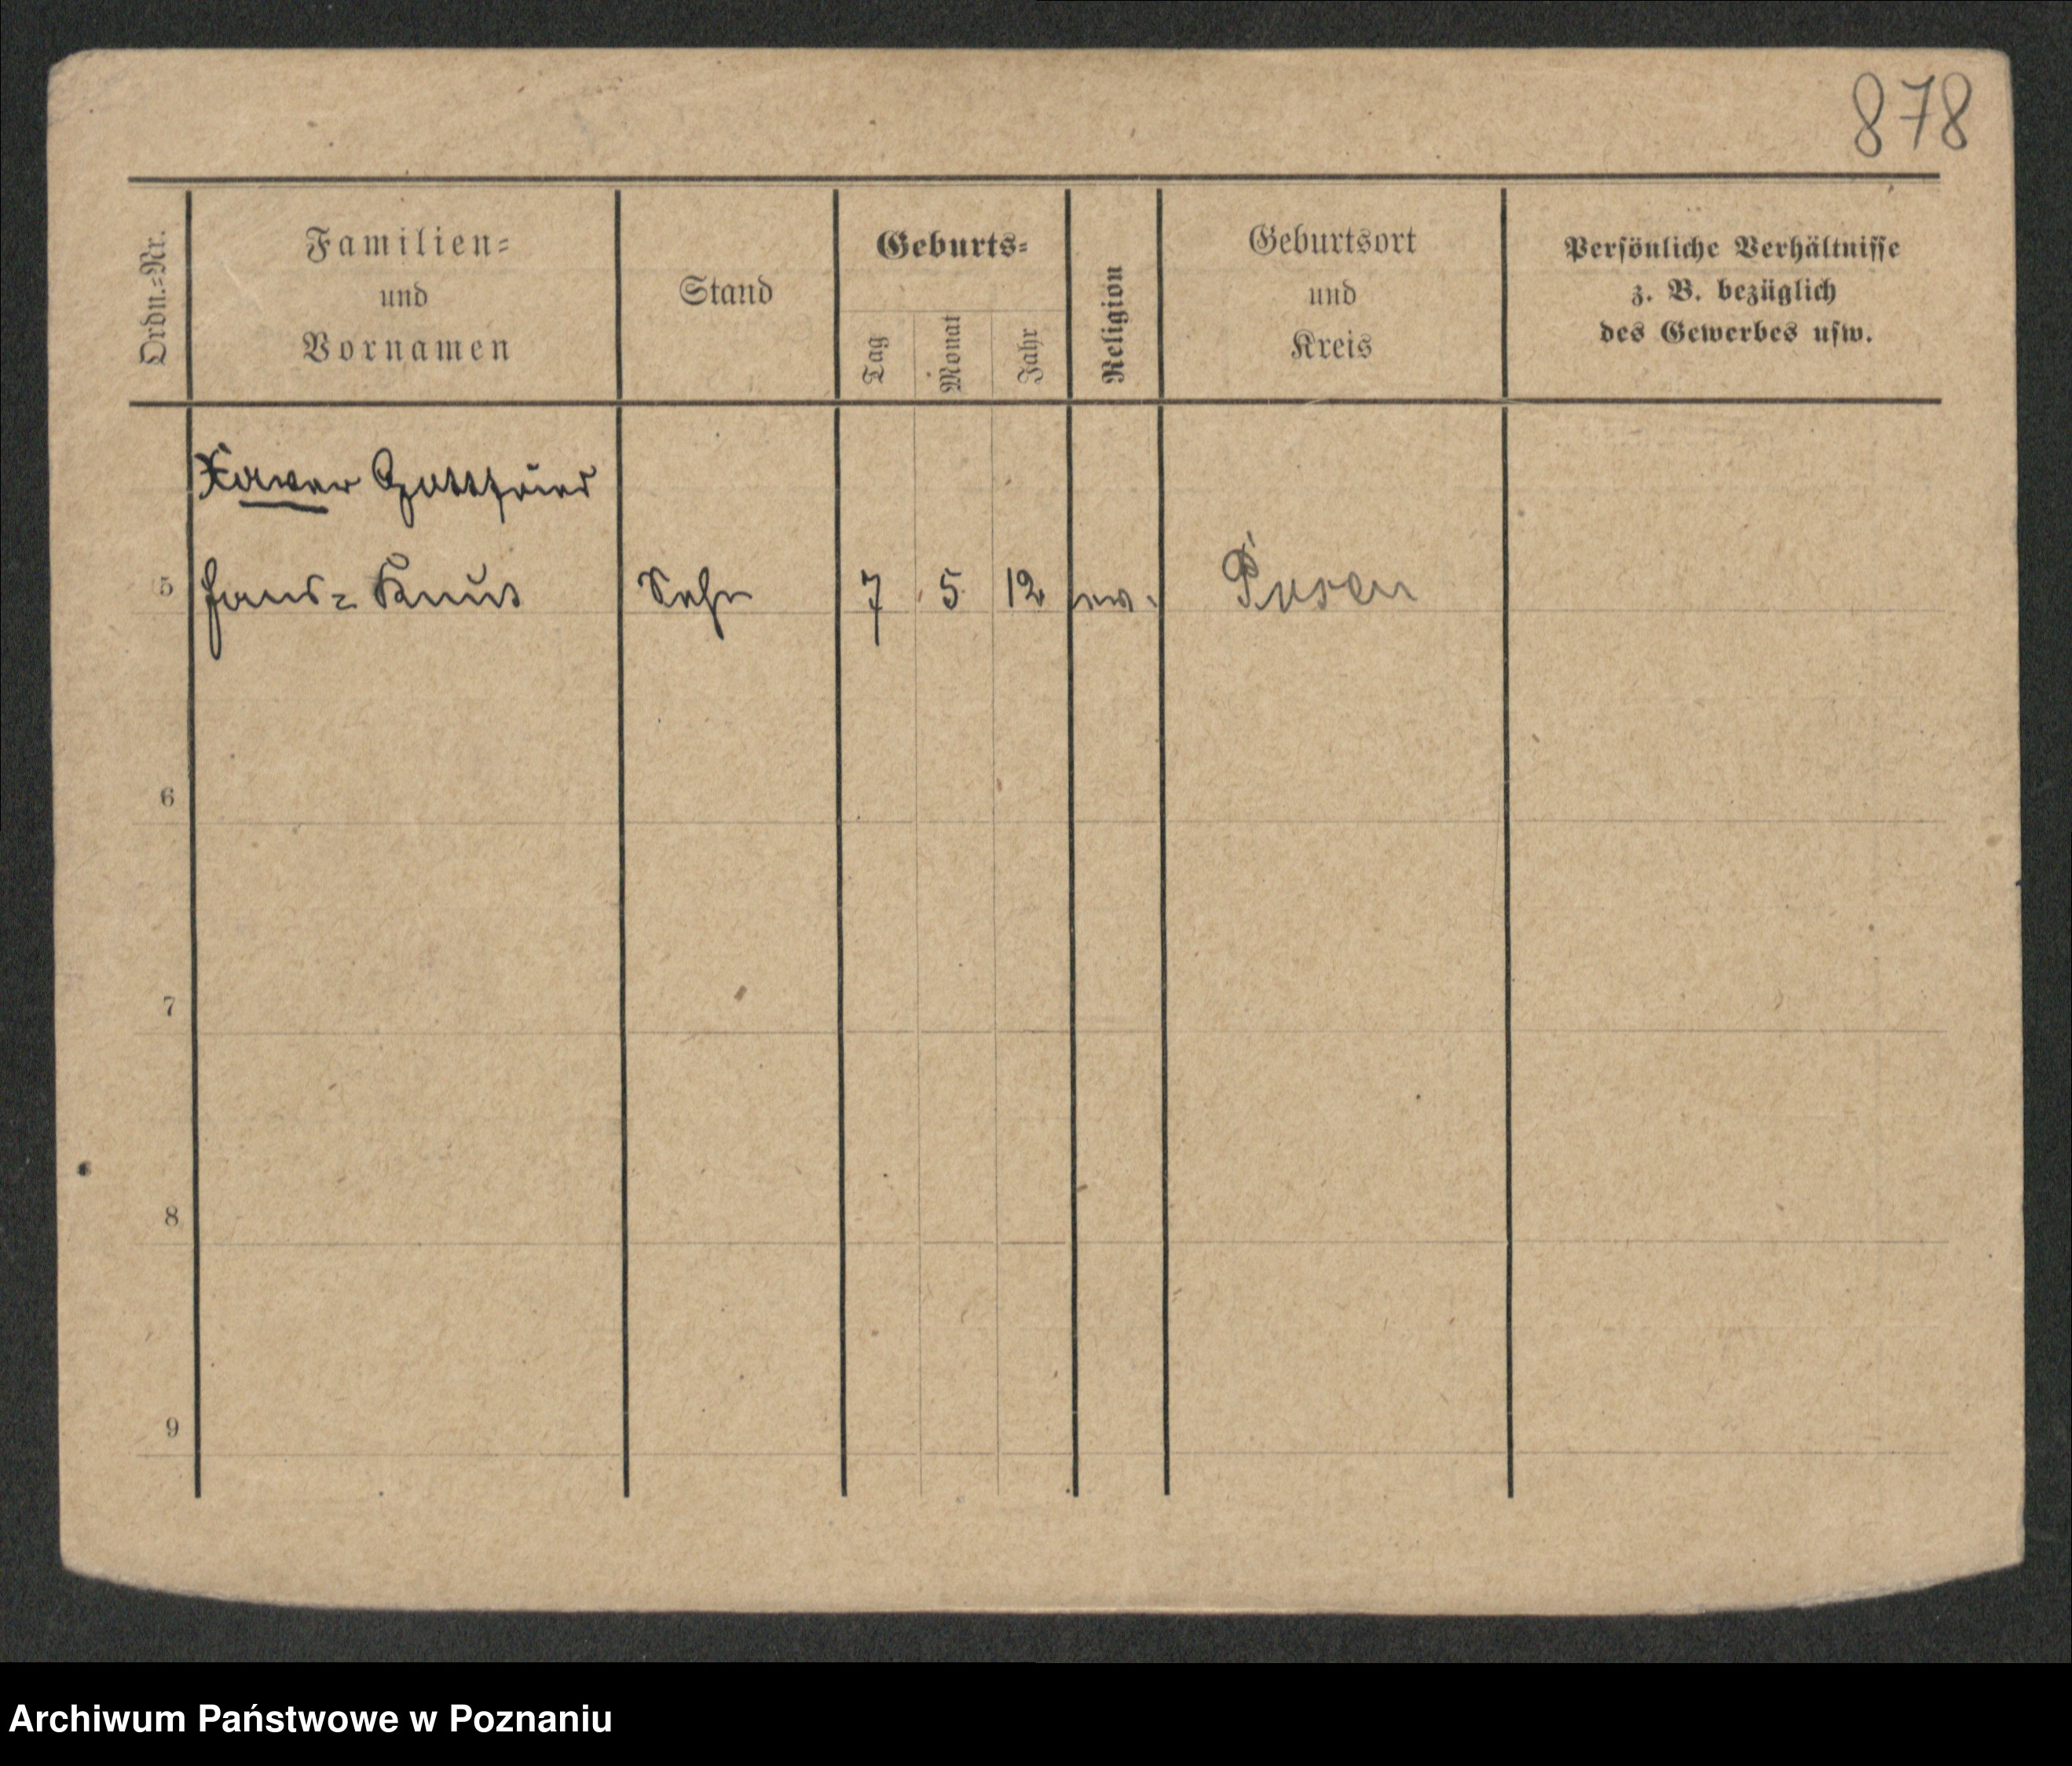 878
Ordn.=Nr.
Familien=
und
Vornamen
Stand
Geburts=
Tag
Monat
Jahr
Religion
Geburtsort
und
Kreis
Persönliche Verhältnisse
z. B. bezüglich
des Gewerbes usw.
Xaver Gottfried
5 Hans= Knud Sohn 7 5 12 ev. Posen
6
7
8
9
Archiwum Państwowe w Poznaniu